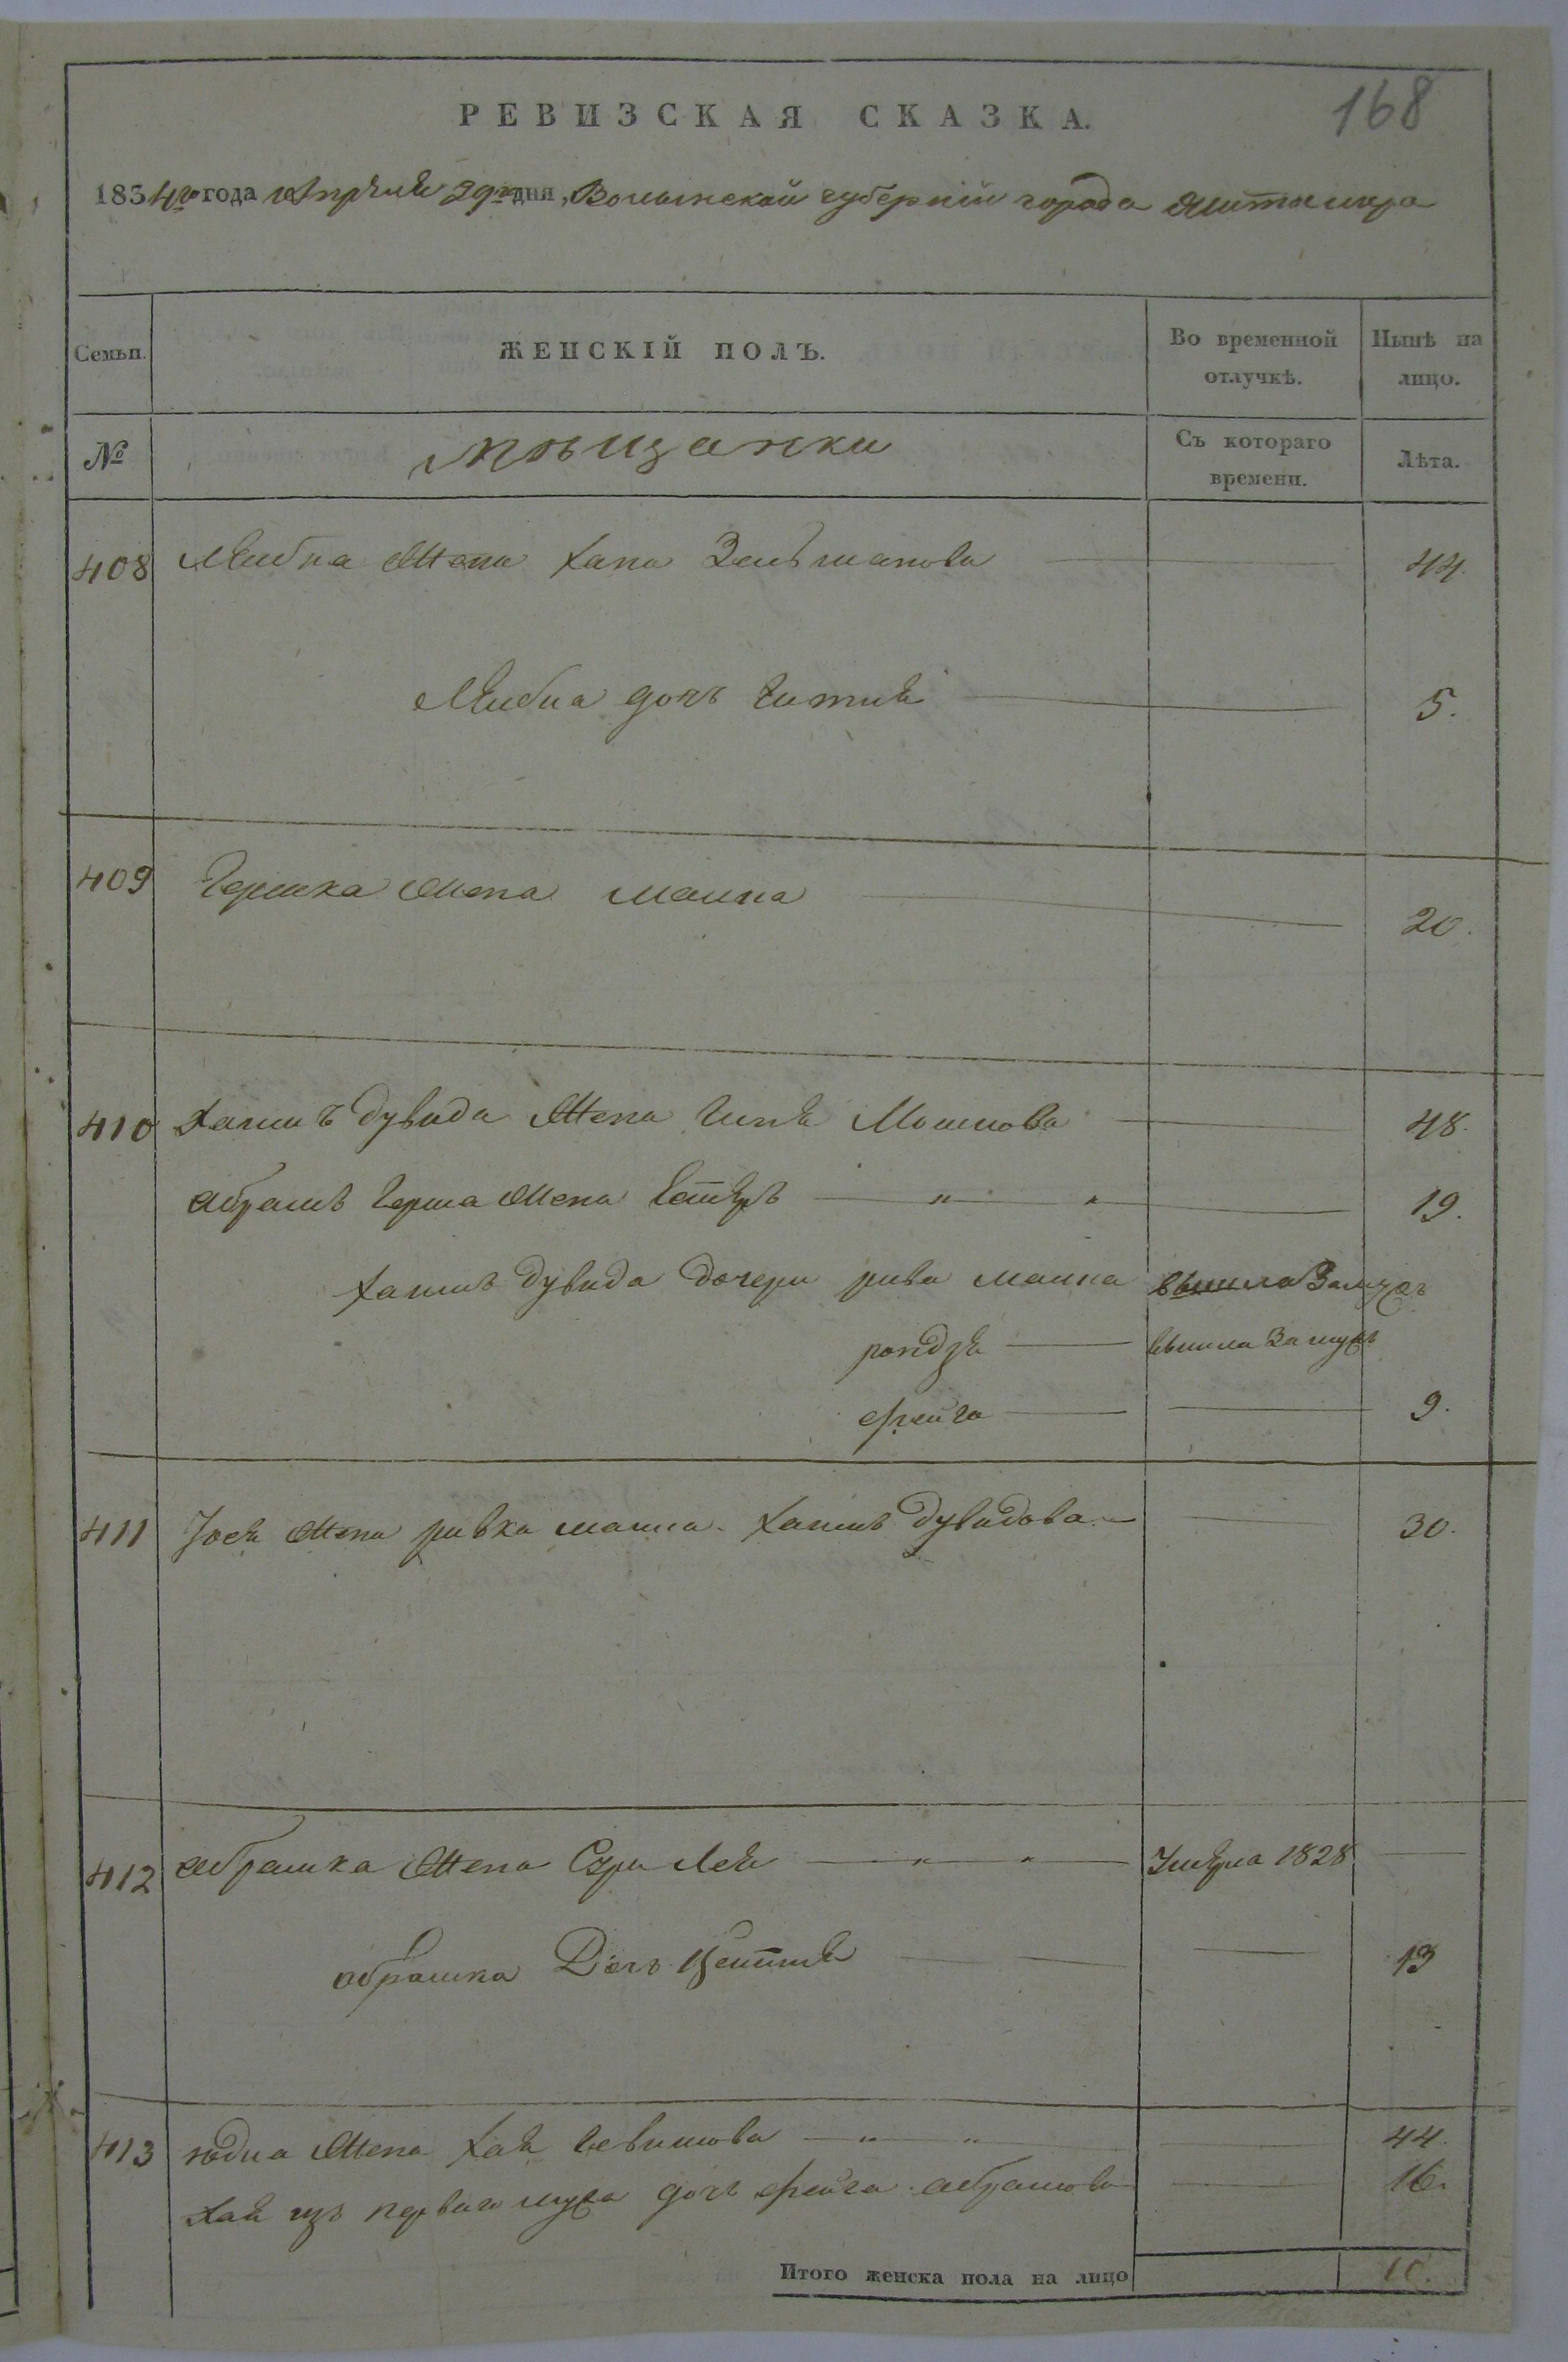 168
РЕВИЗСКАЯ СКАЗКА.
1834го года Апреля 29го дня, Волынской губерніи города Житомира
Семьи. ЖЕНСКІЙ ПОЛЪ. Во временной отлучкѣ. Нынѣ на лицо.
№ мѣщанки Съ котораго времени. Лѣта.
408 Лейбка Жена Хана Зельманова 44.
Лейбка дочь Гитля 5.
409 Гершка Жена Малка 20.
410 Хаимъ Дувида Жена Мошкова 48.
Абрамъ Герша Жена Естеръ " " 19.
Хаимъ Дувида дочери рива малка вышла Замужъ
рондзя вышла Замужъ
фейга 9.
411 Іося Жена ривка малка Хаимъ Дувидова 30.
412 Абрамка Жена Сури Лея " " Умерла 1828
абрамка Дочь Цейтля 13
413 юдка Жена Хая Левитова " " 44.
Хаи изъ перваго мужа дочь фейга абрамова 16.
Итого женска пола на лицо 10.